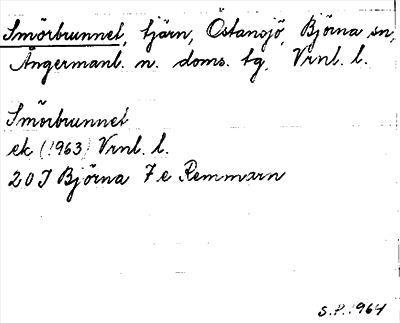 Smörbrunnet, tjärn, Östansjö, Björna sn,
Ångermanl. n. doms. tg, Vrnl. l.
Smörbrunnet
ek (1963) Vrnl. l.
20 J Björna 7 e Remmarn
S.P. 1964